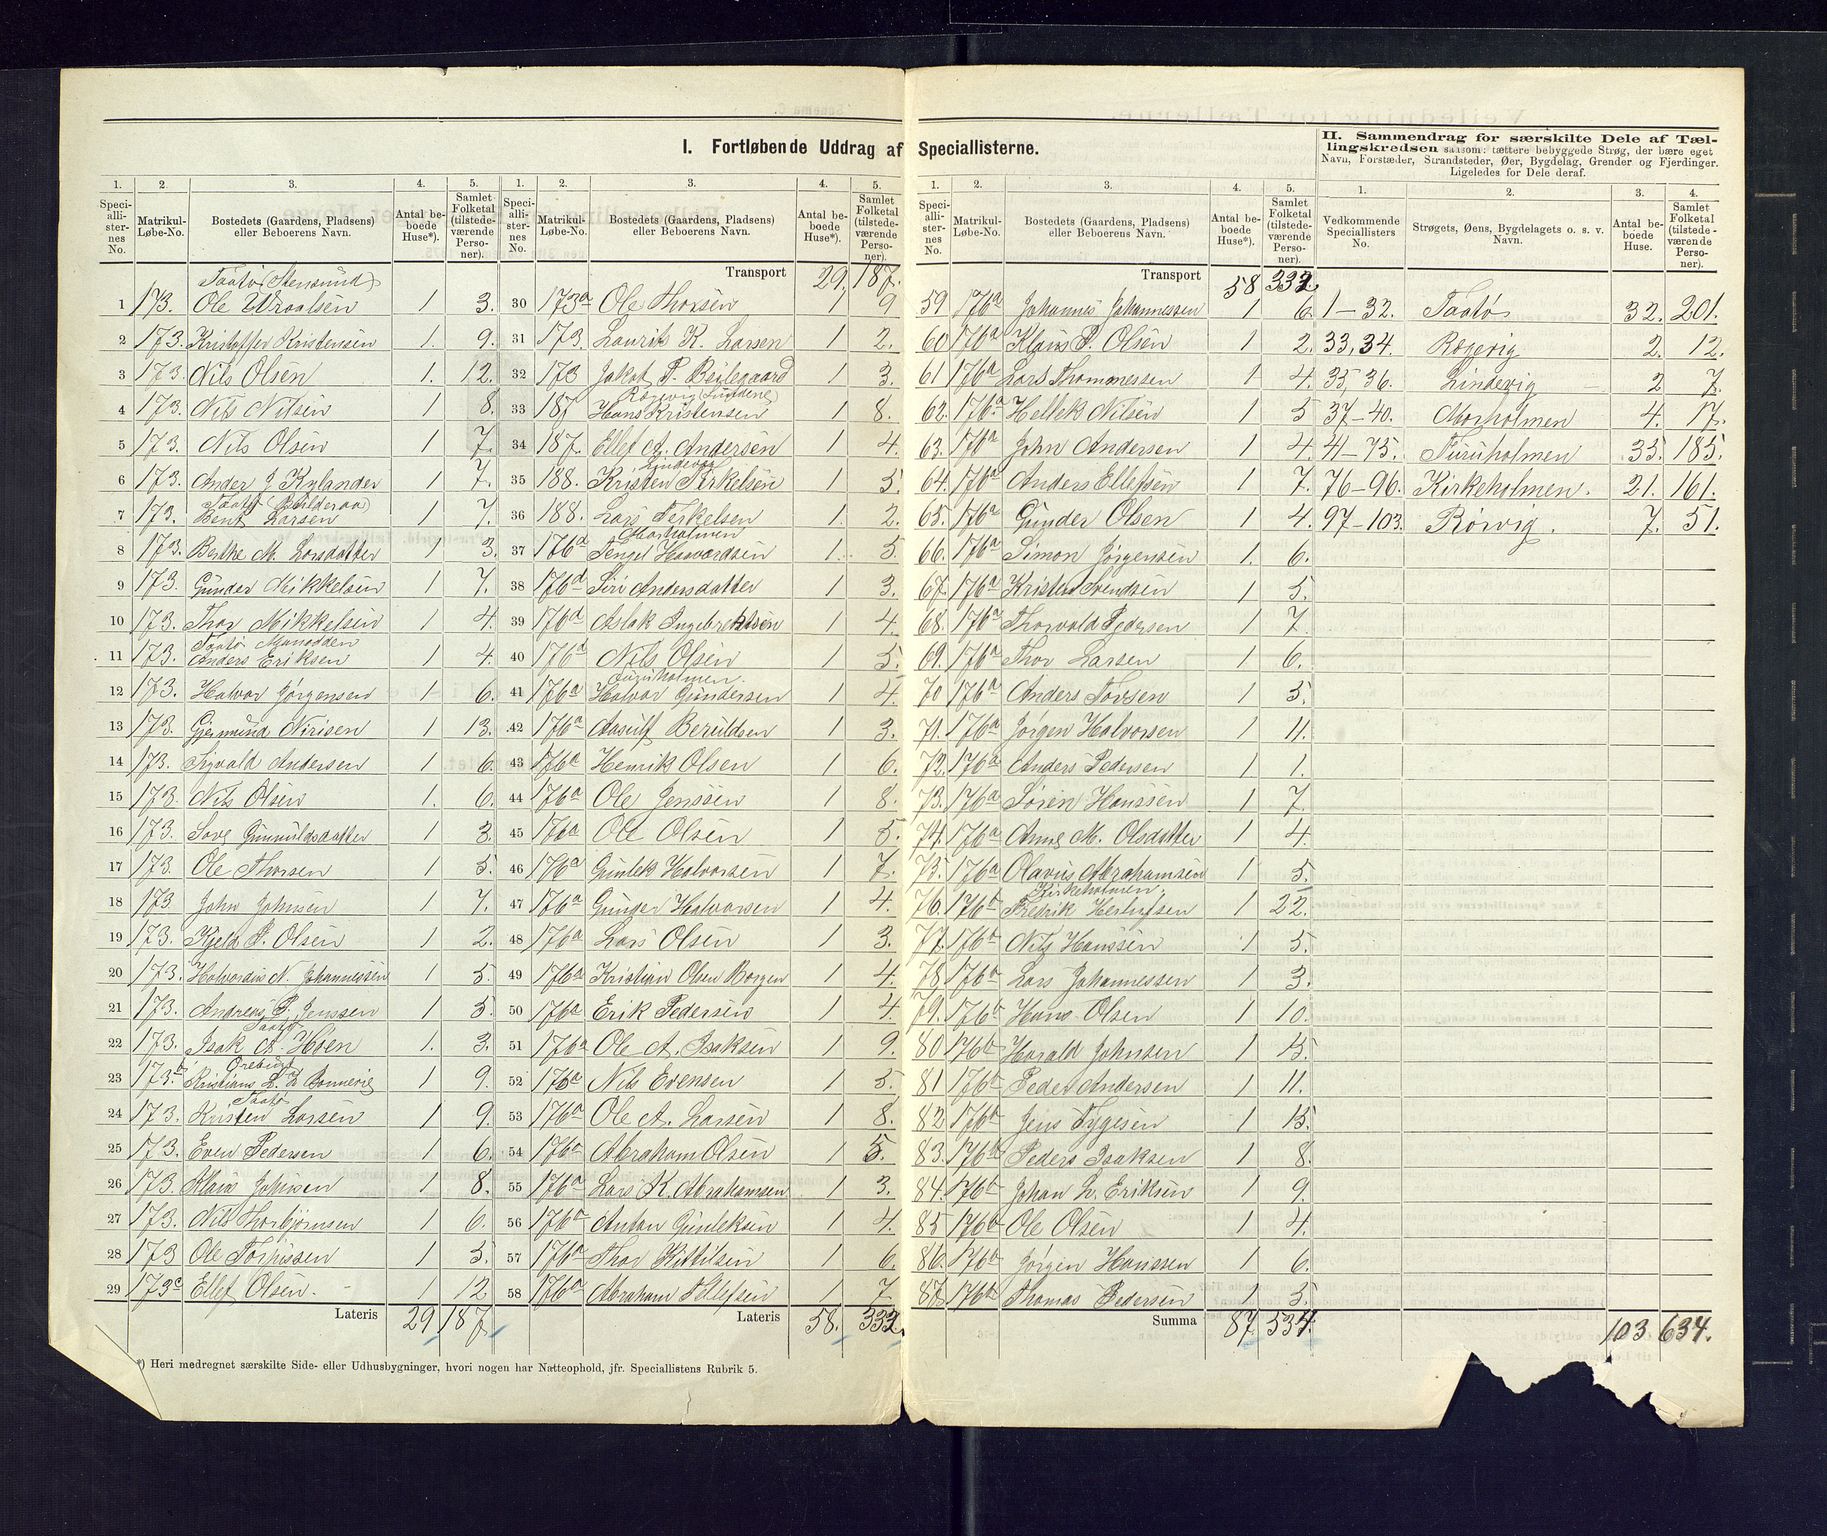 I. Fortløbende Uddrag af Speciallisterne.
II. Sammendrag for særskilte Dele af Tællingskredsen saasom: tættere bebyggede Strøg, der bære eget Navn, Forstæder, Strandsteder, Øer, Bygdelag, Grender og Fjerdinger. Ligeledes for Dele deraf.
1. 2. 3. 4. 5.
Speciallisternes No. Matrikul-Løbe-No. Bostedets (Gaardens, Pladsens) eller Beboerens Navn. Antal beboede Huse*). Samlet Folketal (tilstedeværende Personer).
Taatø (Stensund)
1 173. Ole Uraalsen 1 3.
2 173. Kristoffer Kristensen 1. 9.
3 173. Nils Olsen 1. 12.
4 173. Nils Nilsen 1 8.
5 173. Nils Olsen 1 7.
6 173. Ander J Kylander 1 7.
Taatø (Bulderaa)
7 173. Bent Larsen 1 7.
8 173. Berthe M. Larsdatter 1 3.
9 173. Gunder Mikkelsen 1 7.
10 173. Thor Mikkelsen 1 4.
Taatø Monodden
11 173. Anders Eriksen 1 4.
12 173. Halvor Jørgensen 1 6.
13 173. Gjermund Nirisen 1 13.
14 173. Sigvald Andersen 1 6.
15 173. Nils Olsen 1. 6.
16 173. Tove Gunnuldsdatter 1 3.
17 173. Ole Thorsen 1 5.
18 173. John Johnsen 1 7.
19 173. Kjeld P. Olsen 1 2.
20 173. Halvordius N. Johannessen 1 5.
21 173. Andreas P. Jenssen 1 5.
Taatø
22 173. Isak A. Hoen 1. 3.
Ørebugt
23 173.b Kristians L. L. Bonnevie 1 9.
Taatø
24 173. Kristen Larsen 1 9.
25 173. Even Pedersen 1 6.
26 173. Klaus Johnsen 1 8.
27 173. Nils Thorbjørnsen 1 6.
28 173 Ole Torkissen 1 5.
29 173c Ellef Olsen. 1 12
Lateris 29 187.
1. 2. 3. 4. 5.
Speciallisternes No. Matrikul-Løbe-No. Bostedets (Gaardens, Pladsens) eller Beboerens Navn. Antal beboede Huse*). Samlet Folketal (tilstedeværende Personer).
Transport 29. 187.
30 173a Ole Thorsen 1 9
31 173. Laurits K. Larsen 1 2.
32 173 Jakob P. Beilegaard 1 3.
Rørvig (Lundene)
33 187 Hans Kristensen 1 8.
34 187. Ellef A. Andersen 1 4.
Lindevig
35 188. Kristen Terkelsen 1 5.
36 188. Lars Terkelsen 1. 2.
Morholmen
37 176d Tengel Haavordsen 1. 5.
38 176d Siri Andersdatter 1 3.
39 176d Aslak Ingebretsen 1 4.
40 176d Nils Olsen 1 5.
Furuholmen.
41 176a Halvor Gundersen 1 4.
42 176a Aasulf Beruldsen 1 3.
43 176a Henrik Olsen 1 6.
44 176a Ole Jenssen 1 8.
45 176a Ole Olsen 1 5.
46 176a Gunlek Halvorsen 1 7.
47 176a Gunder Halvorsen 1 4.
48 176a Lars Olsen 1 3.
49 176a Kristian Olsen Borgen 1 4.
50 176a Erik Pedersen 1 4.
51 176a Ole A. Isaksen 1 9.
52 176a Nils Evensen 1 5.
53 176a Ole A. Larsen 1 8.
54 176a Abraham Olsen 1 5.
55 176a Lars K. Abrahamsen 1 3.
56 176a Anton Gunleksen 1 4.
57 176a Thor Kittilsen 1 6.
58 176a Abraham Tellefsen 1 7
Lateris 58. 332.
1. 2. 3. 4. 5.
Speciallisternes No. Matrikul-Løbe-No. Bostedets (Gaardens, Pladsens) eller Beboerens Navn. Antal beboede Huse*). Samlet Folketal (tilstedeværende Personer).
Transport 58 332.
59 176a Johannes Johannessen 1 6.
60 176a Klaus P. Olsen 1 2.
61 176a Lars Thommessen 1 4.
62. 176a Hellek Nilsen 1 5
63. 176a John Andersen 1 4.
64. 176a Anders Ellefsen 1 7.
65. 176a Gunder Olsen 1 4.
66. 176a Simon Jørgensen 1. 6.
67. 176a Kristen Svendsen 1 5.
68. 176a Thorvald Pedersen 1 7.
69. 176a Thor Larsen 1 6.
70 176a Anders Tovsen 1 5.
71. 176a Jørgen Halvorsen 1 11.
72. 176a Anders Pedersen 1 1.
73. 176a Søren Hanssen 1 7.
74. 176a Anne M. Olsdatter 1 4.
75. 176a Olavus Abrahamsen 1 5.
Kirkeholmen.
76. 176b Fredrik Herlufsen 1 22.
77. 176b Nils Hanssen 1 5.
78. 176b Lars Johannessen 1 3.
79. 176b Hans Olsen 1 10.
80 176b Harald Johnsen 1 15.
81 176b Peder Andersen 1 11.
82 176b Jens Tygesen 1 15.
83. 176b Peder Isaksen 1 8.
84. 176b Johan L. Eriksen 1 9.
85 176b Ole Olsen 1 4.
86. 176b Jørgen Hanssen 1 6.
87. 176b Thomas Pedersen 1 5.
Summa 87. 534.
1. 2. 3. 4.
Vedkommende Speciallisters No. Strøgets, Øens, Bygdelagets o. s. v. Navn. Antal beboede Huse. Samlet Folketal (tilstedeværende Personer).
1—32. Taatø 32. 201.
33, 34. Rørvig 2. 12.
35, 36. Lindevig 2 7.
37—40. Morholmen 4. 17.
41—75. Furuholmen 35. 185.
76—96. Kirkeholmen. 21. 161.
97—103. Rørvig. 7. 51.
103 634.
*) Heri medregnet særskilte Side- eller Udhusbygninger, hvori nogen har Natteophold, jfr. Speciallistens Rubrik 5.